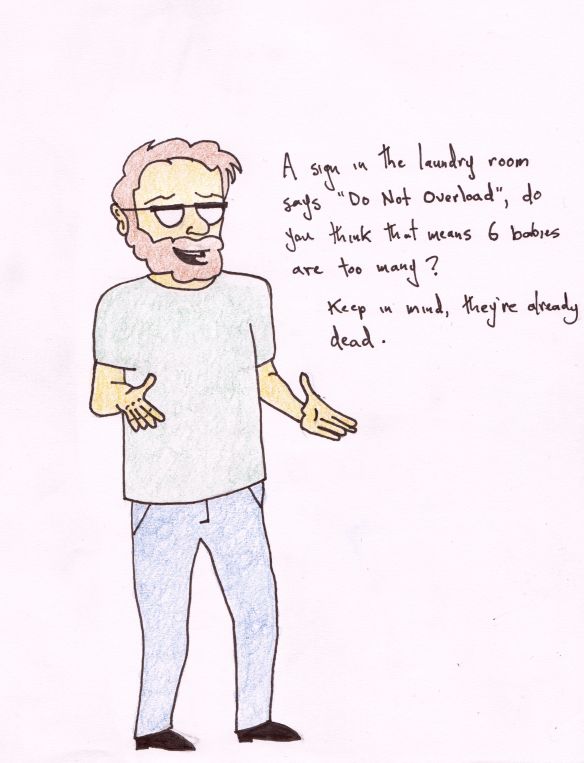 A sign in the laundry room
says "Do Not Overload", do
you think that means 6 babies
are too many?
Keep in mind, they're already
dead.